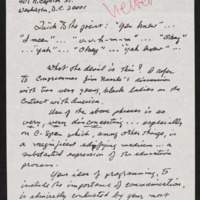 401 N. Capitol St.
Washington, D.C. 20001
Quick to the point: "You know" ...
"I mean" ... "u-u-h-m-m" ... "Okay"
... "yah" ... "Okay" ... "yah know" ...
What the devil is this? I refer
to Congressman Jim Nussle's discussion
with two very young, black ladies on the
Contract with America.
Use of the above phrases is so
very, very disconcerting ... especially
on C-Span which, among other things, is
a magnificent edifying medium ... a
substantial expression of the education
process.
Your idea of programming, to
include the importance of communication,
is admirably conducted by your most